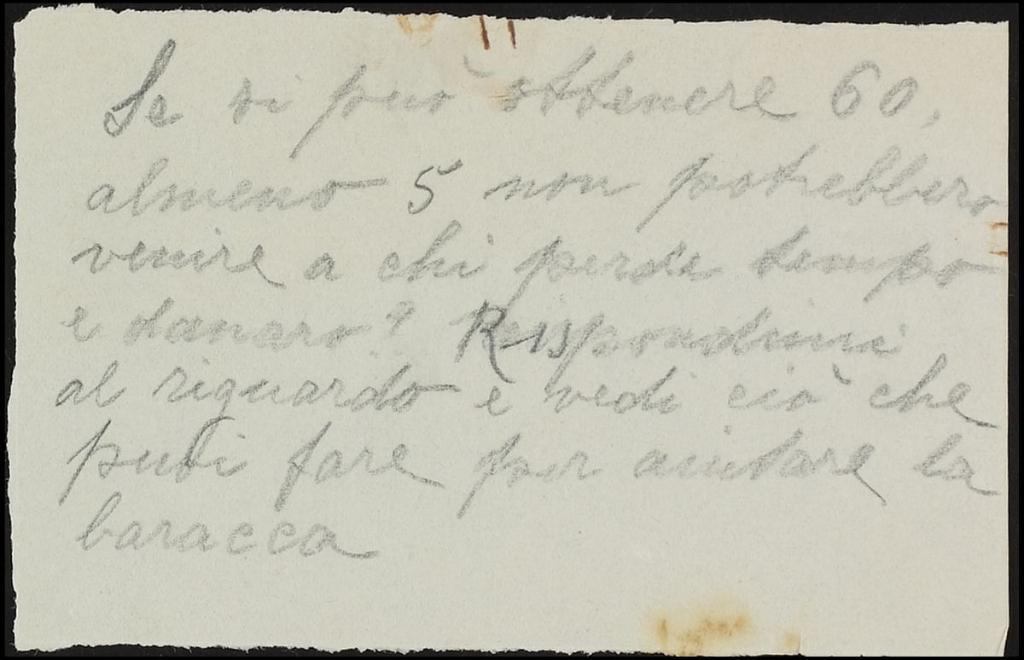 Se si può ottenere 60,
almeno 5 non potrebbero
venire a chi perde tempo
e danaro? Rispondimi
al riguardo e vedi ciò che
puoi fare per aiutare la
baracca